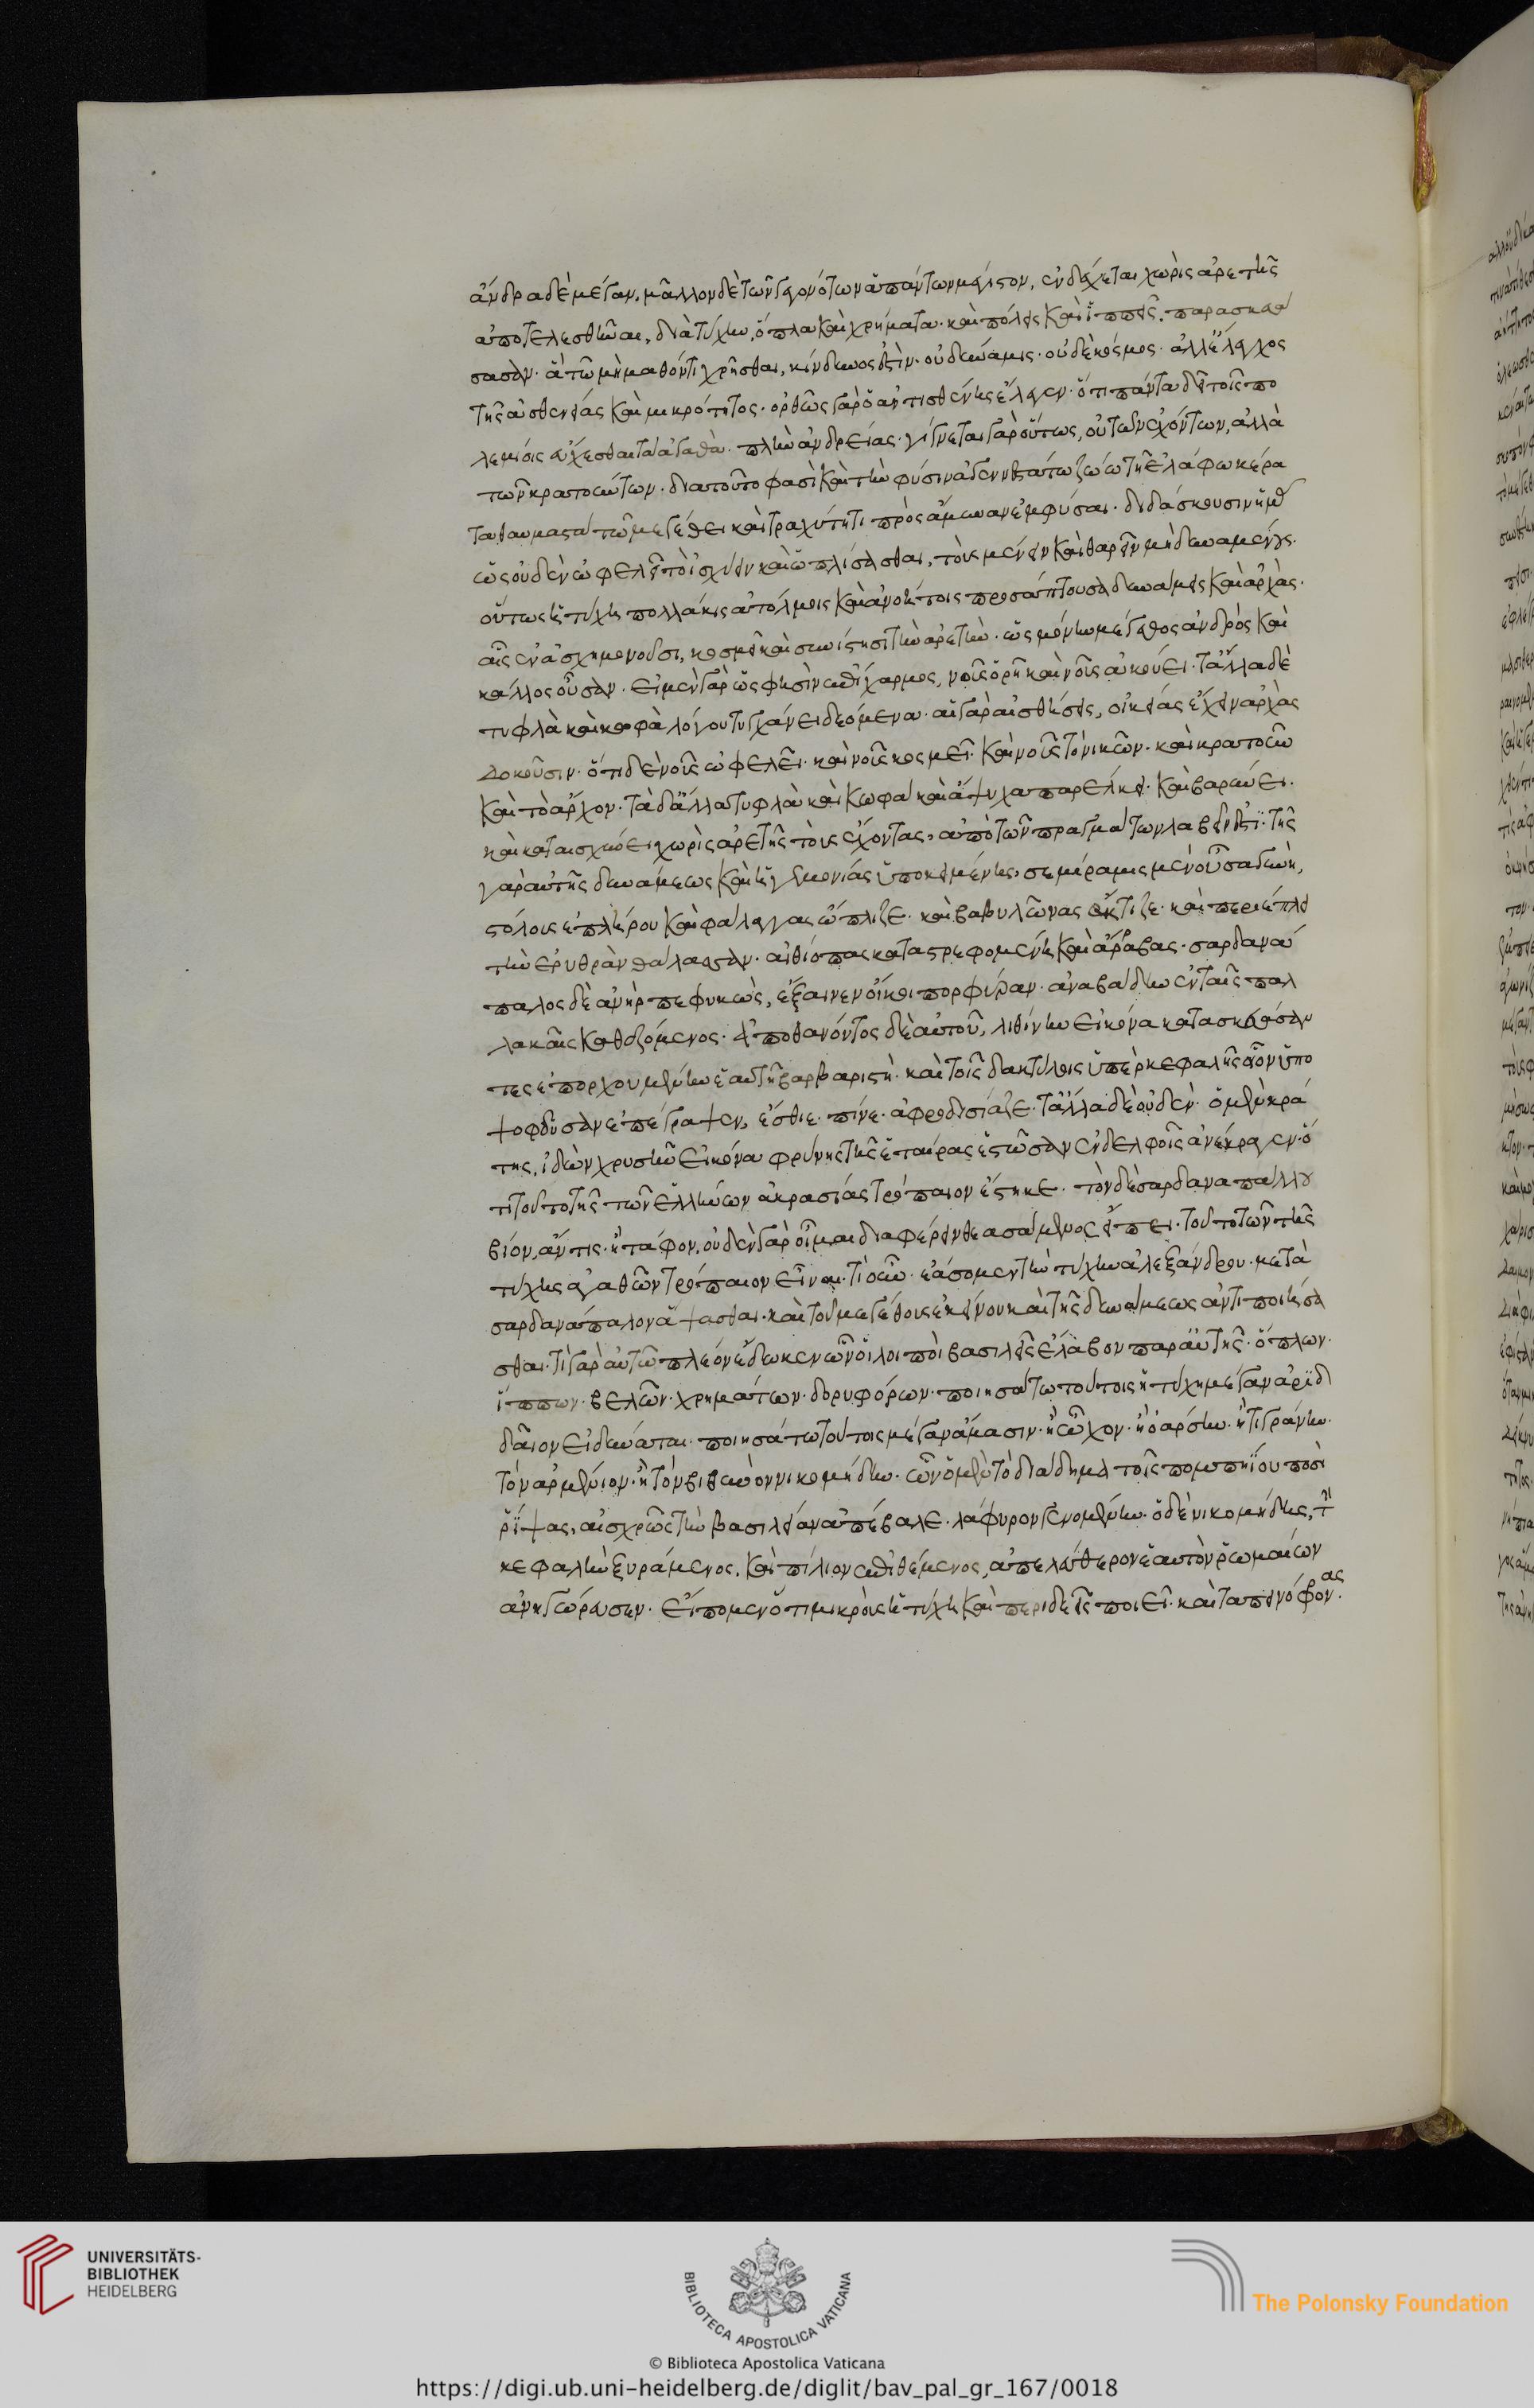 ἄνδρα δὲ μέγαν, μᾶλλον δὲ τῶν γεγονότων ἁπάντων μέγιστον, ἐνδέχεται χωρὶς ἀρετῆς
ἀποτελεσθῆναι, διὰ τύχην, ὅπλα καὶ χρήματα καὶ πόλεις καὶ ἵππεις. παρασκευά
σασαν· ἃ τῷ μὴ μαθόντι χρῆσθαι, κίνδυνος ἐστὶν· οὐ δύναμις· οὐδὲ κόσμος· ἀλλ' ἔλεγχος
τῆς ἀσθενείας καὶ μικρότητος· ὀρθῶς γὰρ ὁ ἀντισθένης ἔλεγεν· ὅτι πάντα δεῖ τοῖς πο
λεμίοις εὔχεσθαι τὰ ἀγαθὰ· πλὴν ἀνδρείας· γίγνεται γὰρ οὕτως, οὐ τῶν ἐχόντων, ἀλλὰ
τῶν κρατούντων· διατοῦτο φασὶ καὶ τὴν φύσιν ἀγεννεστάτω ζώω τῆ ἐλάφω κέρα
τα θαυμαστὰ τῶ μεγέθει καὶ τραχύτητι πρὸς ἄμυναν ἐμφύσαι· διδάσκουσιν ἡμᾶς
ὡς οὐδὲν ὠφελεῖ τὸ ἰσχύειν καὶ ὡπλίσασθαι, τοὺς μένειν καὶ θαρρεῖν μὴ δυναμένους·
οὕτως ἡ τύχη πολλάκις ἀτόλμοις καὶ ἀνοήτοις προσάπτουσα δυνάμεις καὶ ἀρχὰς·
αἷς ἐνασχημονοῦσι, κοσμεῖ καὶ συνίστησι τὴν ἀρετὴν· ὡς μόνην μέγεθος ἀνδρὸς καὶ
κάλλος οὖσαν· εἰ μὲν γὰρ ὥς φησὶν ἐπίχαρμος, νοῦς ὁρῆ καὶ νοῦς ἀκούει· τἄλλα δὲ
τυφλὰ καὶ κωφὰ λόγου τυγχάνει δεόμενα· αἱ γὰρ αἰσθήσεις, οἰκείας ἔχειν ἀρχὰς
δοκοῦσιν· ὅτι δὲ νοῦς ὠφελεῖ· καὶ νοῦς κοσμεῖ· καὶ νοῦς τὸ νικῶν· καὶ κρατοῦν
καὶ τὸ ἄρχον· τὰ δ' ἄλλα τυφλὰ καὶ κωφὰ καὶ ἄψυχα παρέλκει· καὶ βαρύνει·
καὶ καταισχύνει χωρὶς ἀρετῆς τοὺς ἔχοντας, ἀπὸ τῶν πραγμάτων λαβεῖν ἐστϊ· τῆς
γὰρ αὐτῆς δυνάμεως καὶ ἡγεμονίας ὑποκειμένης, σεμίραμις μὲν οὖσα γυνὴ,
στόλους ἐπλήρου καὶ φάλαγγας ὥπλιζε· καὶ βαβυλῶνας ἔκτιζε· καὶ περιέπλει
τὴν ἐρυθρὰν θάλασσαν· αἰθίοπας καταστρεφομένη καὶ ἄραβας· σαρδανά
παλος δὲ ἀνὴρ πεφυκὼς, ἔξαινεν οἴκοι πορφύραν· ἀναβάδην ἐν ταῖς παλ
λακαῖς καθεζόμενος· ἀποθανόντος δὲ αὐτοῦ, λιθίνην εἰκόνα κατασκευάσαν
τες ἐπορχουμένην ἑαυτῆ βαρβαριστὶ· καὶ τοῖς δακτύλοις ὑπὲρ κεφαλῆς οἷον ὑπο
ψοφοῦσαν ἐπέγραψεν, ἔσθιε· πίνε· ἀφροδισίαζε· τἄλλα δὲ οὐδέν· ὁ μὲν κρά
της, ἰδὼν χρυσῆν εἰκόνα φρύνης τῆς ἑταίρας ἑστῶσαν ἐν δελφοῖς ἀνέκραγεν· ὅ
τι τοῦτο τῆς τῶν ἑλλήνων ἀκρασίας τρόπαιον ἕστηκε· τὸν δὲ σαρδαναπάλλου
βίον, ἄν τις· ἢ τάφον, οὐδὲν γὰρ οἶμαι διαφέρειν θεασάμενος εἴποι· τοῦτο τῶν τῆς
τύχης ἀγαθῶν τρόπαιον εἶναι· τί οὖν· ἐάσομεν τὴν τύχην ἀλεξάνδρου μετὰ
σαρδανάπαλον ἅψασθαι· καὶ τοῦ μεγέθους ἐκείνου καὶ τῆς δυνάμεως ἀντιποιήσα
σθαι· τί γὰρ αὐτῶ πλέον ἔδωκεν ὧν οἱ λοιποὶ βασιλεῖς ἔλαβον παρ' αὐτῆς· ὅπλων·
ἵππων· βελῶν· χρημάτων· δορυφόρων· ποιησάτω τούτοις ἡ τύχη μέγαν ἀρϊδ
δαῖον εἰ δύναται· ποιησάτω τούτοις μέγαν ἄμασιν· ἢ ὦχον· ἢ ὀάρσην· ἢ τιγράνην
τὸν ἀρμένιον· ἢ τὸν βιθυνὸν νικομήδην· ὧν ὁ μὲν τὸ διάδημα τοῖς πομπηΐου ποσὶ
ῥίψας, αἰσχρῶς τὴν βασιλείαν ἀπέβαλε· λάφυρον γενομένην· ὁ δὲ νικομήδης, τὴν
κεφαλὴν ξυράμενος, καὶ πίλιον ἐπιθέμενος, ἀπελεύθερον ἑαυτὸν ῥωμαίων
ἀνηγόρευσεν· εἴπομεν ὅτι μικροὺς ἡ τύχη καὶ περιδεεῖς ποιεῖ· καὶ ταπεινόφρονας·
UNIVERSITÄTS-
BIBLIOTHEK
HEIDELBERG
BIBLIOTECA APOSTOLICA VATICANA
The Polonsky Foundation
© Biblioteca Apostolica Vaticana
https://digi.ub.uni-heidelberg.de/diglit/bav_pal_gr_167/0018